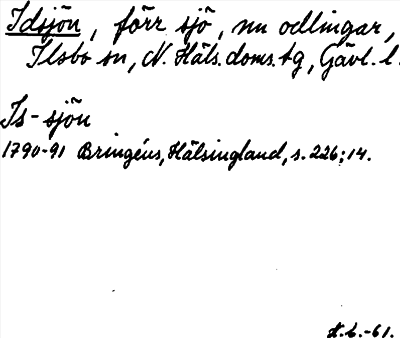 Idsjön, förr sjö, nu odlingar,
Ilsbo sn, N. Häls. doms. tg, Gävl. l.
Is-sjön
1790-91 Bringéus, Hälsingland, s. 226; 14.
H.L.-61.